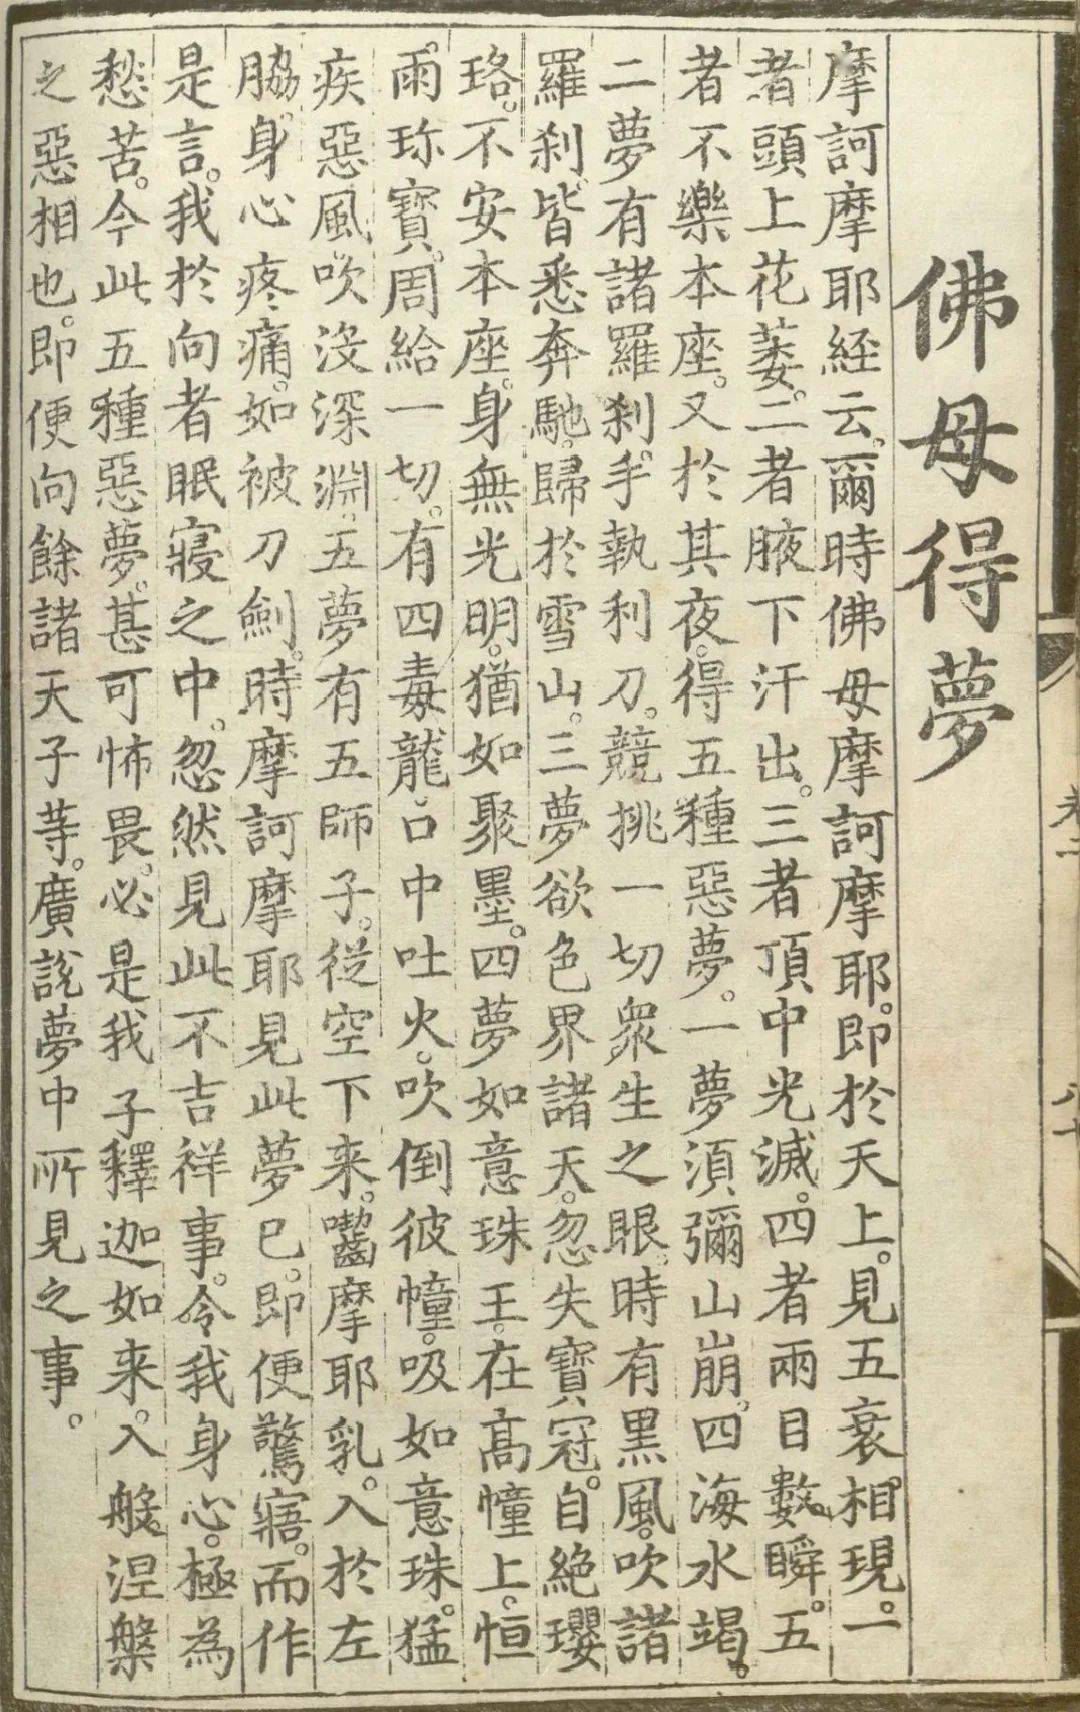 佛母得夢
摩訶摩耶經云。爾時佛母摩訶摩耶。即於天上。見五衰相現。一
者頭上花萎。二者腋下汗出。三者頂中光滅。四者兩目數瞬。五
者不樂本座。又於其夜。得五種惡夢。一夢須彌山崩。四海水竭。
二夢有諸羅刹。手執利刀。競挑一切眾生之眼。時有黑風。吹諸
羅刹。皆悉奔馳。歸於雪山。三夢欲色界諸天。忽失寶冠。自絕瓔
珞。不安本座。身無光明。猶如聚墨。四夢如意珠王。在高幢上。恒
雨珎寶。周給一切。有四毒龍。口中吐火。吹倒彼幢。吸如意珠。猛
疾惡風。吹沒深淵。五夢有五師子。從空下来。囓摩耶乳。入於左
脇。身心疼痛。如被刀劍。時摩訶摩耶見此夢已。即便驚寤。而作
是言。我於向者眠寢之中。忽然見此不吉祥事。令我身心。極為
愁苦。今此五種惡夢。甚可怖畏。必是我子釋迦如来。入般涅槃
之惡相也。即便向餘諸天子等。廣說夢中所見之事。
卷二